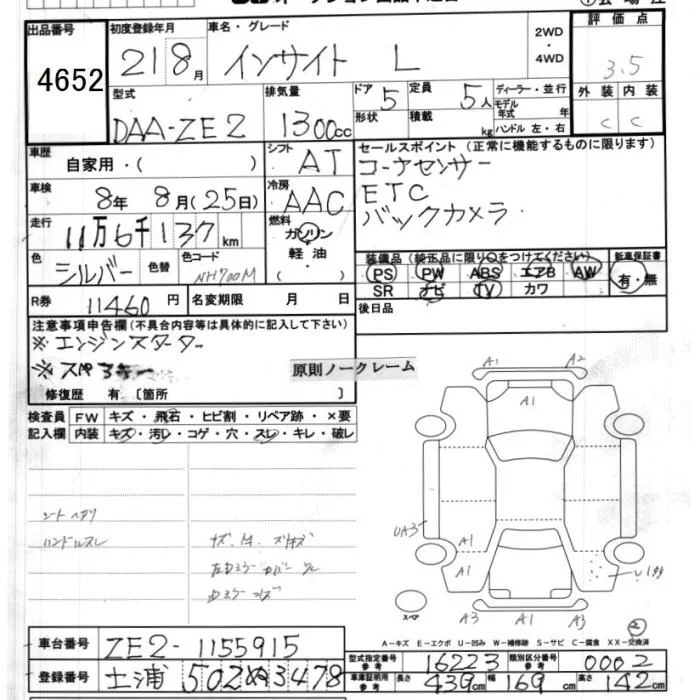 出品番号
4652
初度登録年月
21 8月
車名・グレード
インサイト L
2WD
・
4WD
評価点
3.5
外装 内装
C C
型式
DAA-ZE2
排気量
1300cc
ドア 5
形状
定員 5人
積載 kg
ディーラー・並行
モデル
年式 年
ハンドル 左・右
車歴
自家用・( )
シフト
AT
車検
8年 8月(25日)
冷房
AAC
走行
11万6千137km
燃料
ガソリン
軽油・
( )
色
シルバー
色替
色コード
NH700M
R券
11460円
名変期限 月 日
セールスポイント(正常に機能するものに限ります)
コーナーセンサー
ETC
バックカメラ
装備品(純正品に限り○をつけてください)
PS PW ABS エアB AW
SR ナビ TV カワ
新車保証書
有・無
後日品
注意事項申告欄(不具合内容等は具体的に記入して下さい)
※エンジンスターター
※スペアキー
原則ノークレーム
修復歴 有〔箇所 〕
検査員
記入欄
FW キズ・飛石・ヒビ割・リペア跡・×要
内装 キズ・汚レ・コゲ・穴・スレ・キレ・破レ
シートヘタリ
ハンドルスレ
A1 A2
A1
UA3
A1
A1
U199
スペア
A3 A1 A3
②
A-キズ E-エクボ U-凹み W-補修跡 S-サビ C-腐食 XX-交換済
車台番号
ZE2-1155915
登録番号
土浦 502 ぬ 3478
型式指定番号
参考
16223
類別区分番号
参考
0002
車庫証明用
参考
長さ 439cm 幅 169cm 高さ 142cm